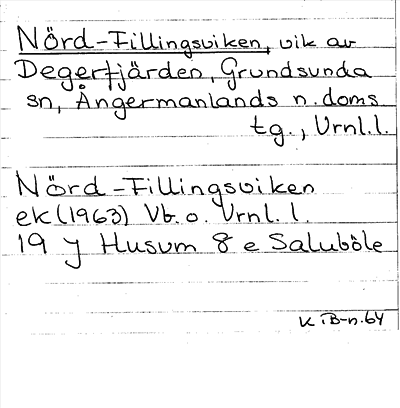 Nörd-Fillingsviken, vik av
Degerfjärden, Grundsunda
sn, Ångermanlands n. doms
tg., Vrnl.l.
Nörd-Fillingsviken
ek (1963) Vb. o. Vrnl. l.
19 J Husum 8 e Saluböle
K. iB-n. 64